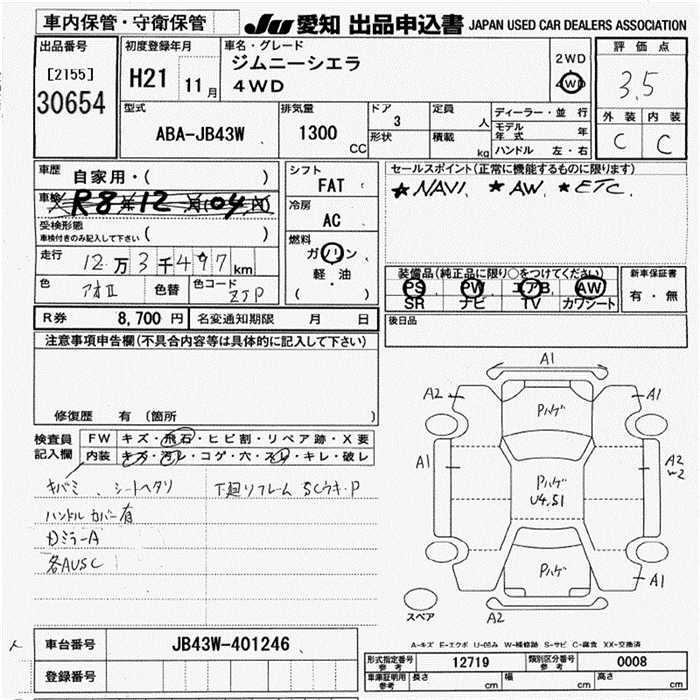 車内保管・守衛保管
JU 愛知 出品申込書 JAPAN USED CAR DEALERS ASSOCIATION
出品番号
[2155]
30654
初度登録年月
H21 11月
車名・グレード
ジムニーシエラ
4WD
2WD
4WD
評価点
3.5
外装 内装
C C
型式
ABA-JB43W
排気量
1300 CC
ドア
3
形状
定員
人
積載
kg
ディーラー・並行
モデル年式 年
ハンドル 左・右
車歴 自家用・( )
車検 R8年12
受検形態
車検付きのみ記入して下さい ( )
走行 12万3千497km
色 アオII 色替 色コード ZJP
シフト
FAT
冷房
AC
燃料
ガソリン
軽・油
( )
セールスポイント(正常に機能するものに限ります)
★NAVI. ★AW. ★ETC.
装備品(純正品に限り○をつけてください)
PS PW エアB AW
SR ナビ TV カワシート
新車保証書
有・無
後日品
R券 8,700 円 名変通知期限 月 日
注意事項申告欄(不具合内容等は具体的に記入して下さい)
修復歴 有 (箇所 )
検査員記入欄
FW キズ・飛石・ヒビ割・リペア跡・X要
内装 キズ・汚レ・コゲ・穴・スレ・キレ・破レ
キバミ、シートヘタリ
ハンドルカバー有
Dミラー A
各AUSC
下廻りフレーム SCウキ・P
A1
A2
A1
Pハゲ
A1
Pハゲ
U4.S1
A2
W2
Pハゲ
A1
A2
スペア
A-キズ E-エクボ U-凹み W-補修跡 S-サビ C-腐食 XX-交換済
車台番号 JB43W-401246
登録番号
形式指定番号 参考 12719 類別区分番号 参考 0008
車庫証明用 参考 長さ 幅 高さ